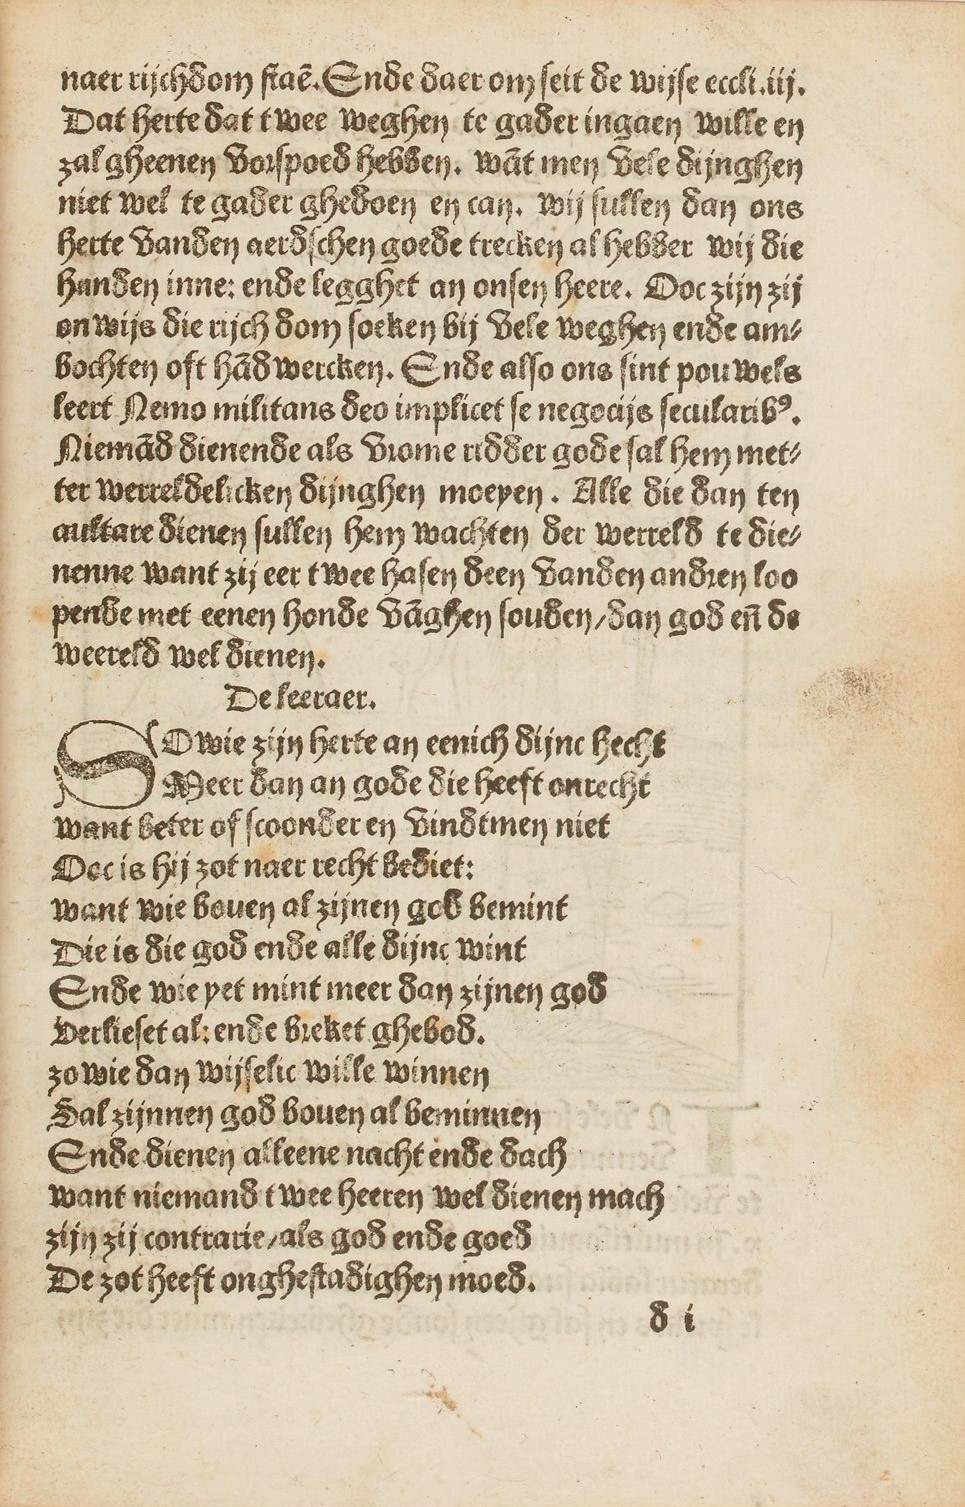 naer rijchdom staē. Ende daer om seit de wijse eccli.iij.
Dat herte dat twee weghen te gader ingaen wille en
zal gheenen vorspoed hebben. wāt men vele dijnghen
niet wel te gader ghedoen en can. wij sullen dan ons
herte vanden aerdschen goede trecken al hebber wij die
handen inne: ende legghet an onsen heere. Ooc zijn zij
onwijs die rijch dom soeken bij vele weghen ende am⸗
bochten oft hādwercken. Ende also ons sint pouwels
leert Nemo militans deo implicet se negocijs secularibꝰ.
Niemād dienende als vrome ridder gode sal hem met⸗
ter werreldelicken dijnghen moeyen. Alle die dan ten
aultare dienen sullen hem wachten der werreld te die⸗
nenne want zij eer twee hasen deen vanden andren loo
pende met eenen honde vāghen souden/dan god eñ de
weereld wel dienen.
De leeraer.
SOwie zijn herte an eenich dijnc hecht
Meer dan an gode die heeft onrecht
want beter of scoonder en vindtmen niet
Ooc is hij zot naer recht bediet:
want wie bouen al zijnen god bemint
Die is die god ende alle dijnc wint
Ende wie yet mint meer dan zijnen god
verlieset al: ende breket ghebod.
zo wie dan wijselic wille winnen
Sal zijnnen god bouen al beminnen
Ende dienen alleene nacht ende dach
want niemand twee heeren wel dienen mach
zijn zij contrarie/als god ende goed
De zot heeft onghestadighen moed.
d i